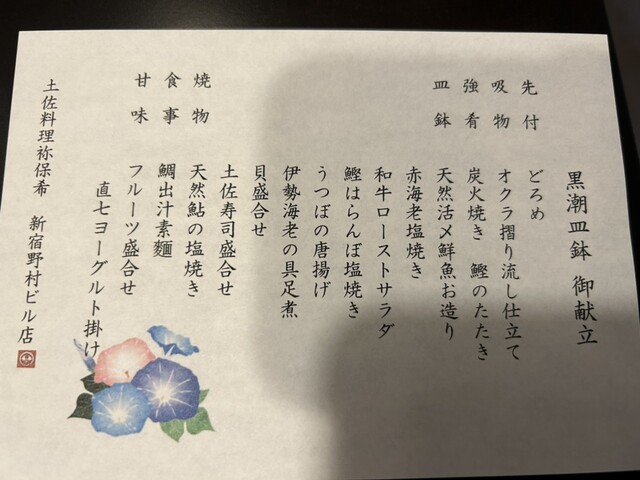 黒潮皿鉢 御献立
先付 どろめ
吸物 オクラ摺り流し仕立て
強肴 炭火焼き 鰹のたたき
皿鉢 天然活〆鮮魚お造り
赤海老塩焼き
和牛ローストサラダ
鰹はらんぼ塩焼き
うつぼの唐揚げ
伊勢海老の具足煮
貝盛合せ
土佐寿司盛合せ
焼物 天然鮎の塩焼き
食事 鯛出汁素麺
甘味 フルーツ盛合せ
直七ヨーグルト掛け
土佐料理祢保希 新宿野村ビル店